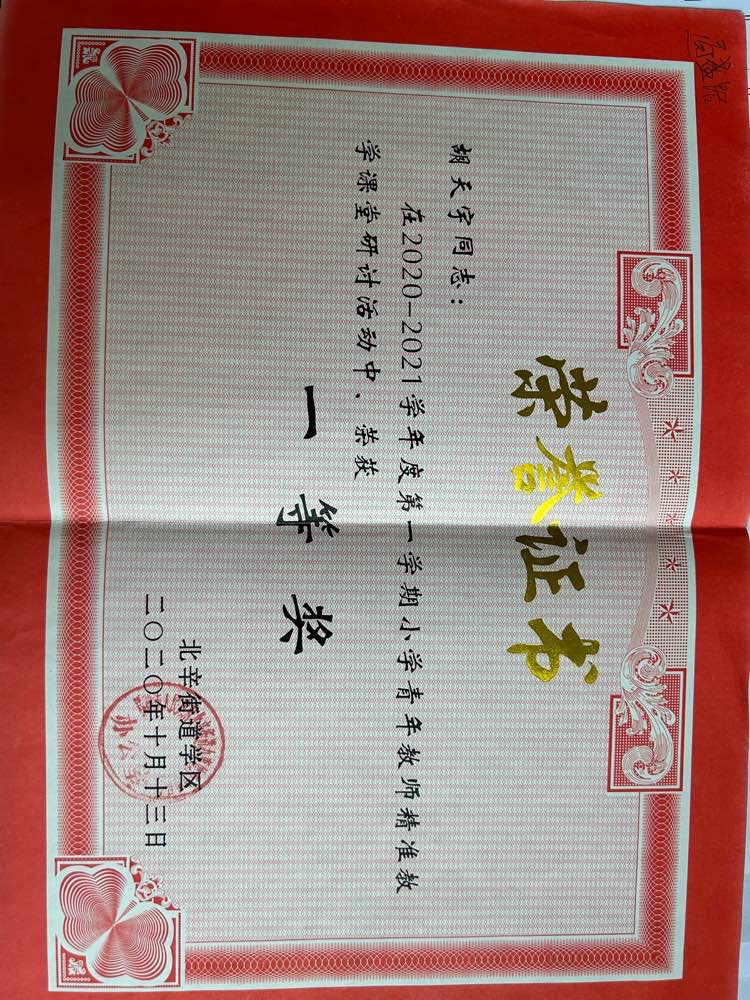 荣誉证书
胡天宇同志：
在2020-2021学年度第一学期小学青年教师精准教
学课堂研讨活动中、荣获
一等奖
北辛街道学区
二〇二〇年十月十三日
办公室